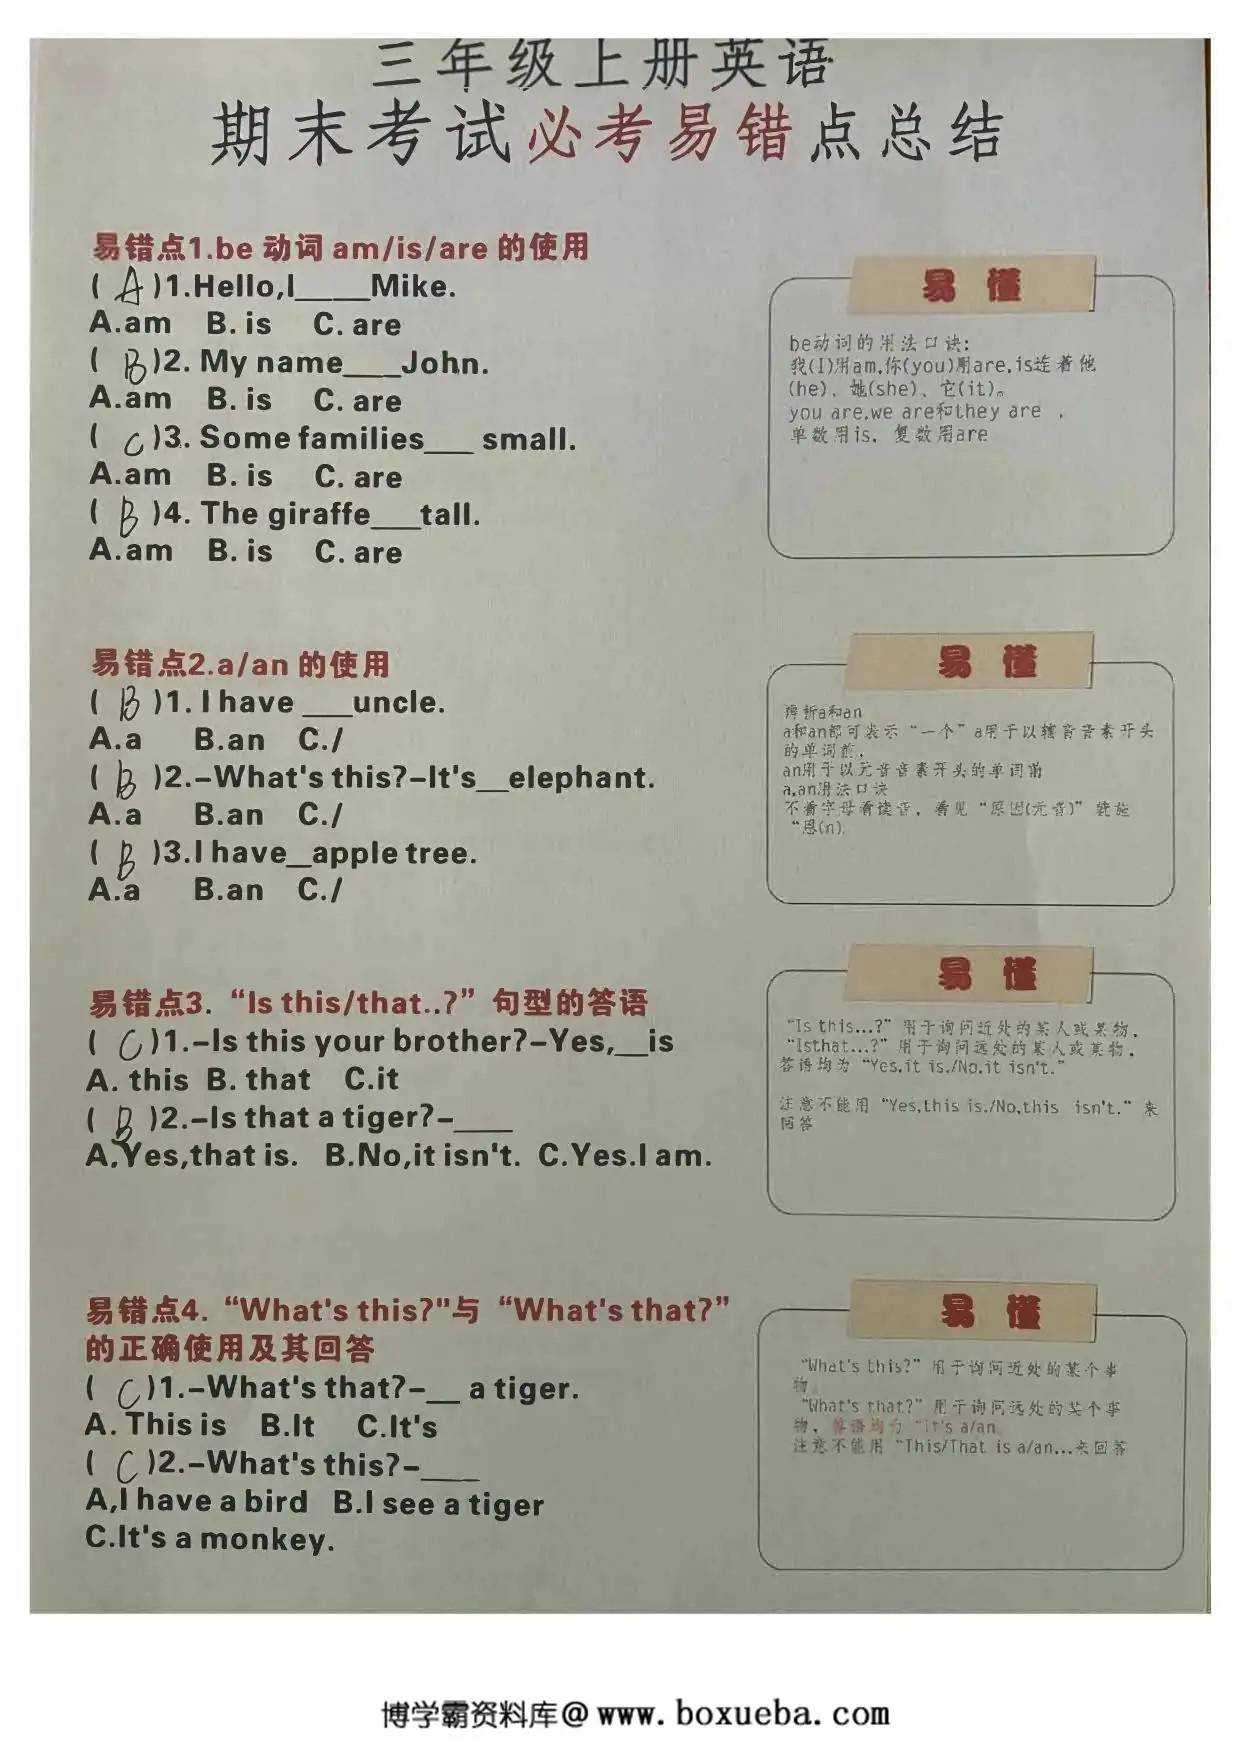 三年级上册英语
期末考试必考易错点总结
易错点1.be 动词 am/is/are 的使用
( A )1.Hello,I____Mike.
A.am B. is C. are
( B )2. My name___John.
A.am B. is C. are
( C )3. Some families___ small.
A.am B. is C. are
( B )4. The giraffe___tall.
A.am B. is C. are
易懂
be动词的用法口诀:
我(I)用am,你(you)用are,is连着他
(he)、她(she)、它(it)。
you are,we are和they are ,
单数用is, 复数用are
易错点2.a/an 的使用
( B )1. I have ___uncle.
A.a B.an C./
( B )2.-What's this?-It's__elephant.
A.a B.an C./
( B )3.I have__apple tree.
A.a B.an C./
易懂
辨析a和an
a和an都可表示“一个”a用于以辅音音素开头
的单词前,
an用于以元音音素开头的单词前
a,an用法口诀
不看字母看读音, 看见“原因(元音)”就施
“恩(n).
易错点3.“Is this/that..?”句型的答语
( C )1.-Is this your brother?-Yes,__is
A. this B. that C.it
( B )2.-Is that a tiger?-____
A.Yes,that is. B.No,it isn't. C.Yes.I am.
易懂
“Is this...?”用于询问近处的某人或某物,
“Isthat...?”用于询问远处的某人或某物,
答语均为“Yes,it is./No,it isn't.”
注意不能用“Yes,this is./No,this isn't.”来
回答
易错点4.“What's this?"与“What's that?”
的正确使用及其回答
( C )1.-What's that?-__ a tiger.
A. This is B.It C.It's
( C )2.-What's this?-____
A,I have a bird B.I see a tiger
C.It's a monkey.
易懂
“What's this?”用于询问近处的某个事
物。
“What's that?”用于询问远处的某个事
物, 答语均为“It's a/an.
注意不能用“This/That is a/an...来回答
博学霸资料库@www.boxueba.com